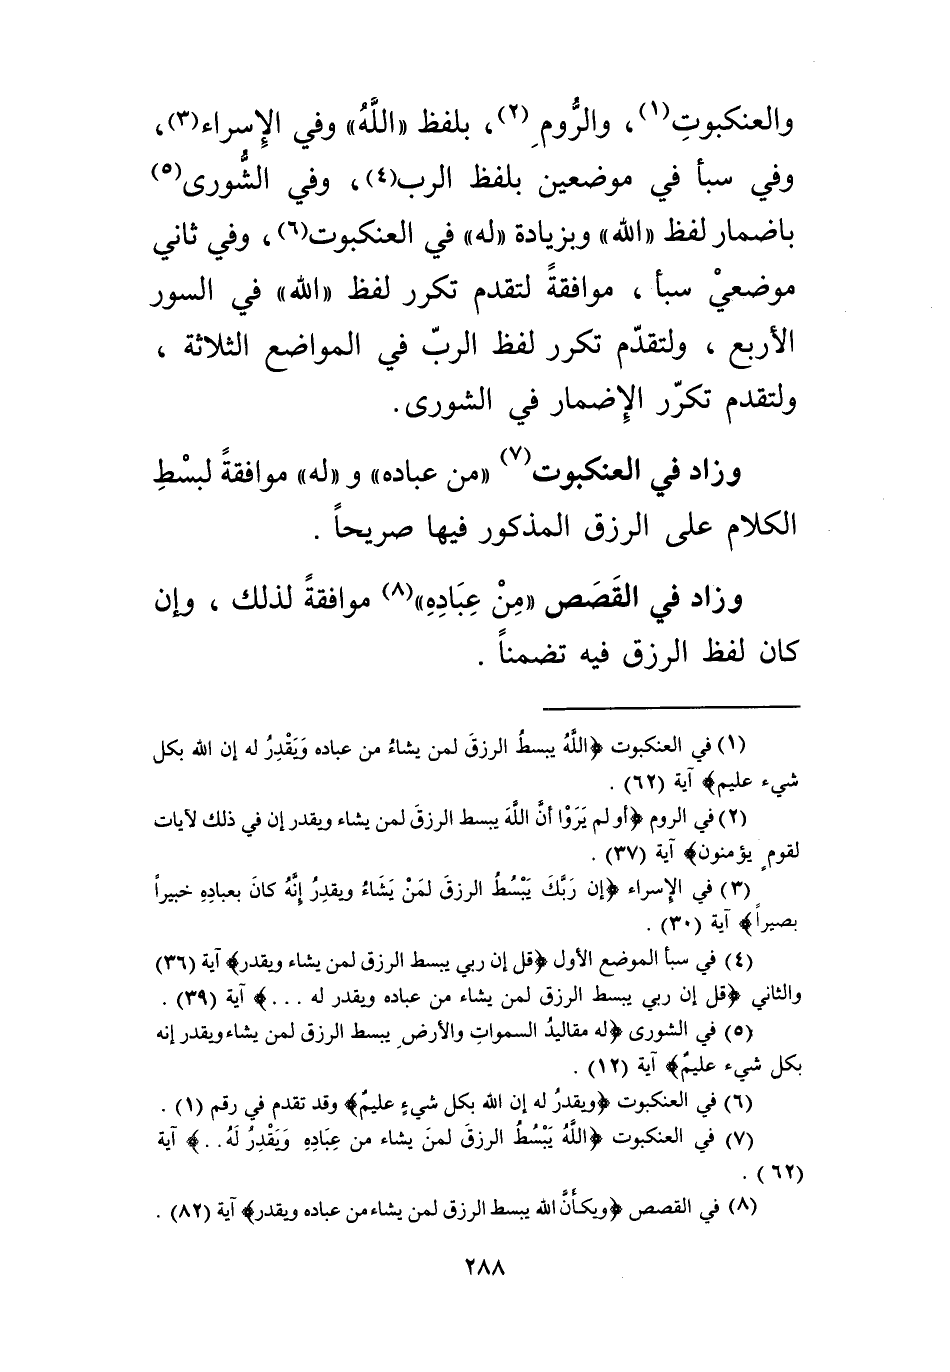 والعنكبوتِ(١)، والرُّومِ(٢)، بلفظ «اللَّهُ» وفي الإِسراء(٣)،
وفي سبأ في موضعين بلفظ الرب(٤)، وفي الشُّورى(٥)
باضمار لفظ «الله» وبزيادة «له» في العنكبوت(٦)، وفي ثاني
موضعيْ سبأ ، موافقةً لتقدم تكرر لفظ «الله» في السور
الأربع ، ولتقدّم تكرر لفظ الربّ في المواضع الثلاثة ،
ولتقدم تكرّر الإِضمار في الشورى.
وزاد في العنكبوت(٧) «من عباده» و «له» موافقةً لبسْطِ
الكلام على الرزق المذكور فيها صريحاً .
وزاد في القَصَص «مِنْ عِبَادِهِ»(٨) موافقةً لذلك ، وإن
كان لفظ الرزق فيه تضمناً .
(١) في العنكبوت ﴿اللَّهُ يبسطُ الرزقَ لمن يشاءُ من عباده وَيَقْدِرُ له إن الله بكل
شيء عليم﴾ آية (٦٢) .
(٢) في الروم ﴿أو لم يَرَوْا أنَّ اللَّهَ يبسط الرزقَ لمن يشاء ويقدر إن في ذلك لآيات
لقومٍ يؤمنون﴾ آية (٣٧) .
(٣) في الإِسراء ﴿إن رَبَّكَ يَبْسُطُ الرزقَ لمَنْ يَشَاءُ ويقدِرُ إِنَّهُ كانَ بعبادِهِ خبيراً
بصيراً﴾ آية (٣٠) .
(٤) في سبأ الموضع الأول ﴿قل إن ربي يبسط الرزق لمن يشاء ويقدر﴾ آية (٣٦)
والثاني ﴿قل إن ربي يبسط الرزق لمن يشاء من عباده ويقدر له ...﴾ آية (٣٩) .
(٥) في الشورى ﴿له مقاليدُ السمواتِ والأرضِ يبسط الرزق لمن يشاء ويقدر إنه
بكل شيء عليمٌ﴾ آية (١٢) .
(٦) في العنكبوت ﴿ويقدرُ له إن الله بكل شيءٍ عليمٌ﴾ وقد تقدم في رقم (١) .
(٧) في العنكبوت ﴿اللَّهُ يَبْسُطُ الرزقَ لمنَ يشاء من عِبَادِهِ وَيَقْدِرُ لَهُ...﴾ آية
(٦٢) .
(٨) في القصص ﴿ويكأَنَّ الله يبسط الرزق لمن يشاء من عباده ويقدر﴾ آية (٨٢) .
٢٨٨